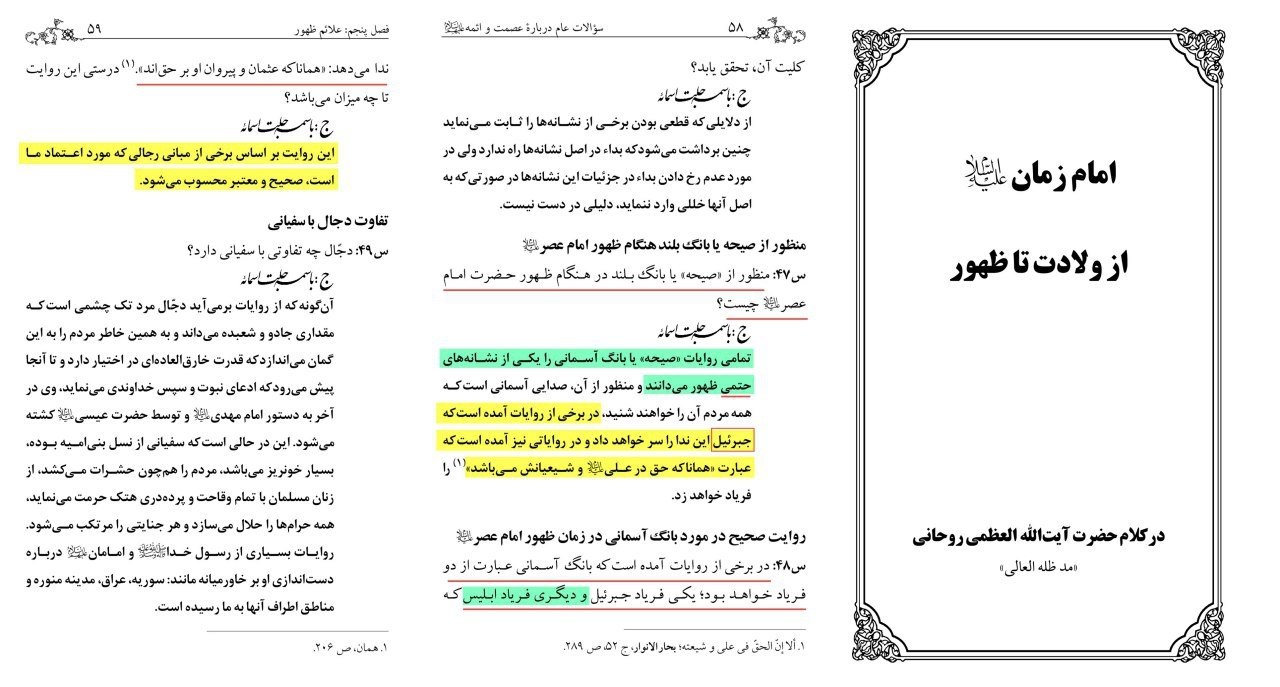 امام زمان علیه السلام
از ولادت تا ظهور
در کلام حضرت آیت‌الله العظمی روحانی
«مد ظله العالی»
۵۸ سؤالات عام دربارهٔ عصمت و ائمه
کلیت آن، تحقق یابد؟
ج: باسمه جلت اسمائه
از دلایلی که قطعی بودن برخی از نشانه‌ها را ثابت می‌نماید
چنین برداشت می‌شود که بداء در اصل نشانه‌ها راه ندارد ولی در
مورد عدم رخ دادن بداء در جزئیات این نشانه‌ها در صورتی که به
اصل آنها خللی وارد ننماید، دلیلی در دست نیست.
منظور از صیحه یا بانگ بلند هنگام ظهور امام عصر
س۴۷: منظور از «صیحه» یا بانگ بلند در هنگام ظهور حضرت امام
عصر چیست؟
ج: باسمه جلت اسمائه
تمامی روایات «صیحه» یا بانگ آسمانی را یکی از نشانه‌های
حتمی ظهور می‌دانند و منظور از آن، صدایی آسمانی است که
همه مردم آن را خواهند شنید، در برخی از روایات آمده است که
جبرئیل این ندا را سر خواهد داد و در روایاتی نیز آمده است که
عبارت «همانا که حق در علی و شیعیانش می‌باشد»(۱) را
فریاد خواهد زد.
روایت صحیح در مورد بانگ آسمانی در زمان ظهور امام عصر
س۴۸: در برخی از روایات آمده است که بانگ آسمانی عبارت از دو
فریاد خواهد بود؛ یکی فریاد جبرئیل و دیگری فریاد ابلیس که
۱. ألا إنّ الحقّ فی علی و شیعته؛ بحارالانوار، ج ۵۲، ص ۲۸۹.
فصل پنجم: علائم ظهور ۵۹
ندا می‌دهد: «همانا که عثمان و پیروان او بر حق‌اند».(۱) درستی این روایت
تا چه میزان می‌باشد؟
ج: باسمه جلت اسمائه
این روایت بر اساس برخی از مبانی رجالی که مورد اعتماد ما
است، صحیح و معتبر محسوب می‌شود.
تفاوت دجال با سفیانی
س۴۹: دجّال چه تفاوتی با سفیانی دارد؟
ج: باسمه جلت اسمائه
آن‌گونه که از روایات برمی‌آید دجّال مرد تک چشمی است که
مقداری جادو و شعبده می‌داند و به همین خاطر مردم را به این
گمان می‌اندازد که قدرت خارق‌العاده‌ای در اختیار دارد و تا آنجا
پیش می‌رود که ادعای نبوت و سپس خداوندی می‌نماید، وی در
آخر به دستور امام مهدی و توسط حضرت عیسی کشته
می‌شود. این در حالی است که سفیانی از نسل بنی‌امیه بوده،
بسیار خونریز می‌باشد، مردم را هم‌چون حشرات می‌کشد، از
زنان مسلمان با تمام وقاحت و پرده‌دری هتک حرمت می‌نماید،
همه حرام‌ها را حلال می‌سازد و هر جنایتی را مرتکب می‌شود.
روایات بسیاری از رسول خدا و امامان درباره
دست‌اندازی او بر خاورمیانه مانند: سوریه، عراق، مدینه منوره و
مناطق اطراف آنها به ما رسیده است.
۱. همان، ص ۲۰۶.